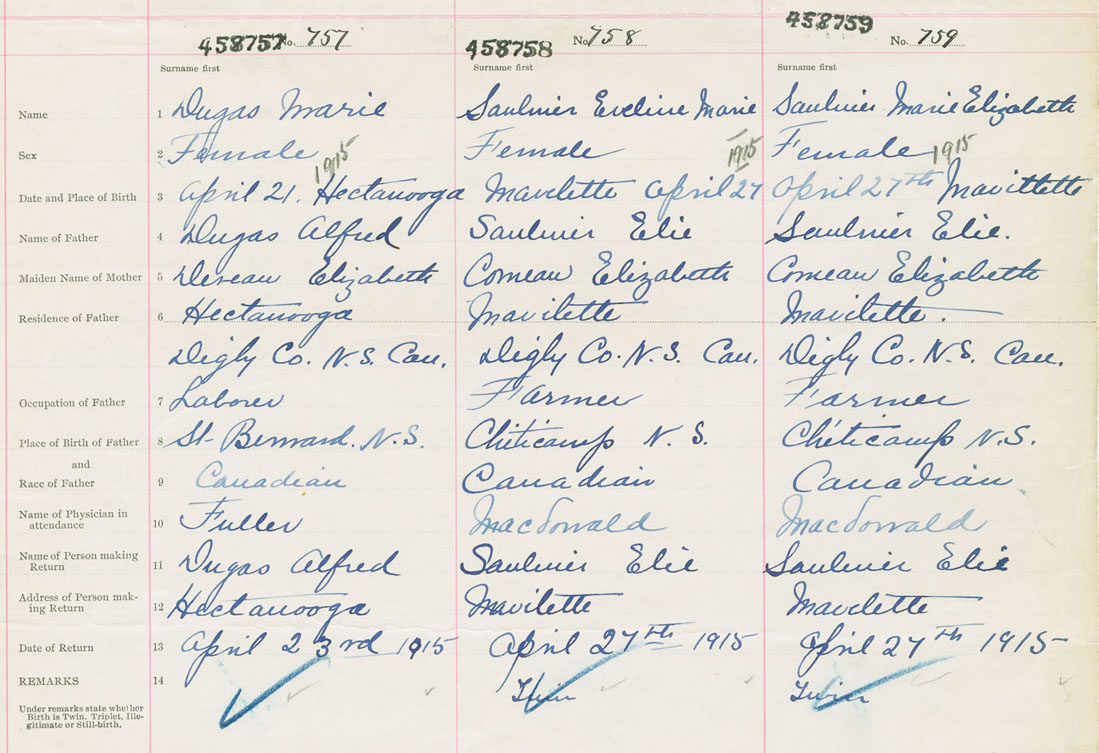 458757 No. 757 458758 No. 758 458759 No. 759
Surname first Surname first Surname first
Name 1 Dugas Marie Saulnier Eveline Marie Saulnier Marie Elizabeth
Sex 2 Female Female Female
1915 1915 1915
Date and Place of Birth 3 April 21. Hectanooga Mavelette April 27 April 27th Mavittette
Name of Father 4 Dugas Alfred Saulnier Elie Saulnier Elie.
Maiden Name of Mother 5 Deveau Elizabeth Comeau Elizabeth Comeau Elizabeth
Residence of Father 6 Hectanooga Mavilette Mavilette.
Digby Co. N.S. Can. Digby Co. N.S. Can. Digby Co. N.S. Can.
Occupation of Father 7 Laborer Farmer Farmer
Place of Birth of Father 8 St. Bernard. N.S. Chiticamp N.S. Chéticamp N.S.
and
Race of Father 9 Canadian Canadian Canadian
Name of Physician in attendance 10 Fuller Macdonald Macdonald
Name of Person making Return 11 Dugas Alfred Saulnier Elie Saulnier Elie
Address of Person mak-ing Return 12 Hectanooga Mavilette Mavelette
Date of Return 13 April 23rd 1915 April 27th 1915 April 27th 1915
REMARKS 14 Twin Twin
Under remarks state whether
Birth is Twin, Triplet, Ille-
gitimate or Still-birth.